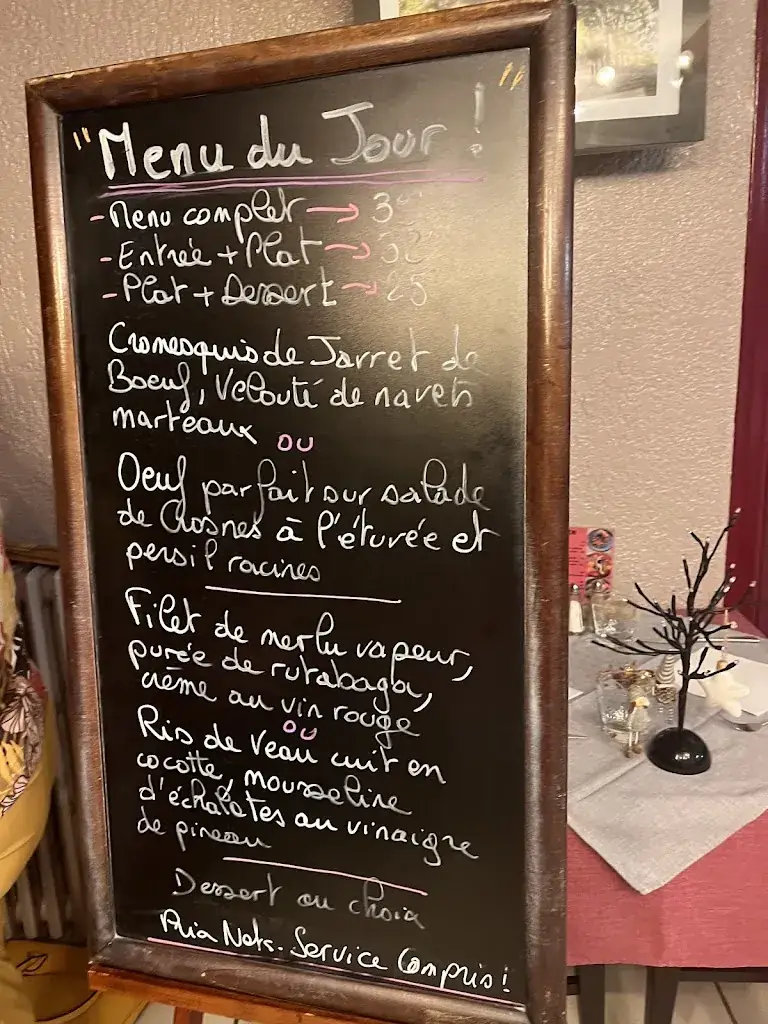 " Menu du Jour ! "
- Menu complet →
- Entrée + Plat →
- Plat + Dessert → 25
Cromesquis de Jarret de
Boeuf, Velouté de navets
marteaux ou
Oeuf parfait sur salade
de Crosnes à l'étuvée et
persil racines
Filet de merlu vapeur,
purée de rutabaga,
crème au vin rouge
ou
Ris de Veau cuit en
cocotte, mousseline
d'échalotes au vinaigre
de pineau
Dessert au choix
Prix Nets. Service Compris !